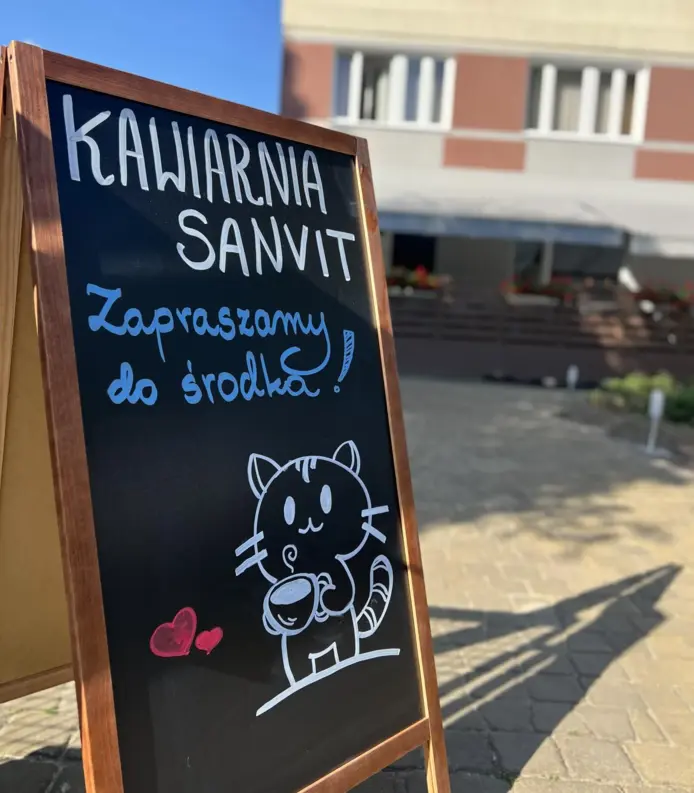 KAWIARNIA
SANVIT
Zapraszamy
do środka!